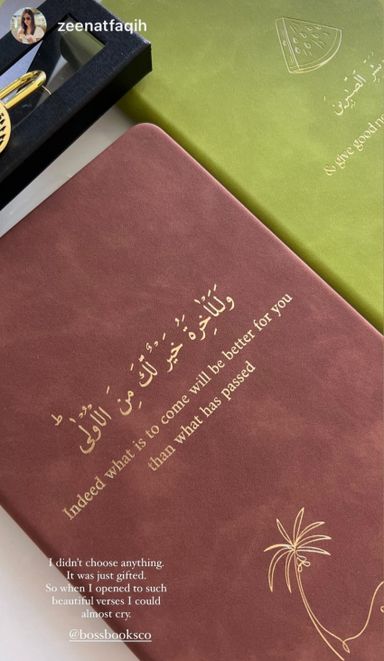 zeenatfaqih
وَبَشِّرِ الصَّابِرِينَ
& give good ne
وَلَلْآخِرَةُ خَيْرٌ لَّكَ مِنَ الْأُولَىٰ
Indeed what is to come will be better for you
than what has passed
I didn't choose anything.
It was just gifted.
So when I opened to such
beautiful verses I could
almost cry.
@bossbooksco